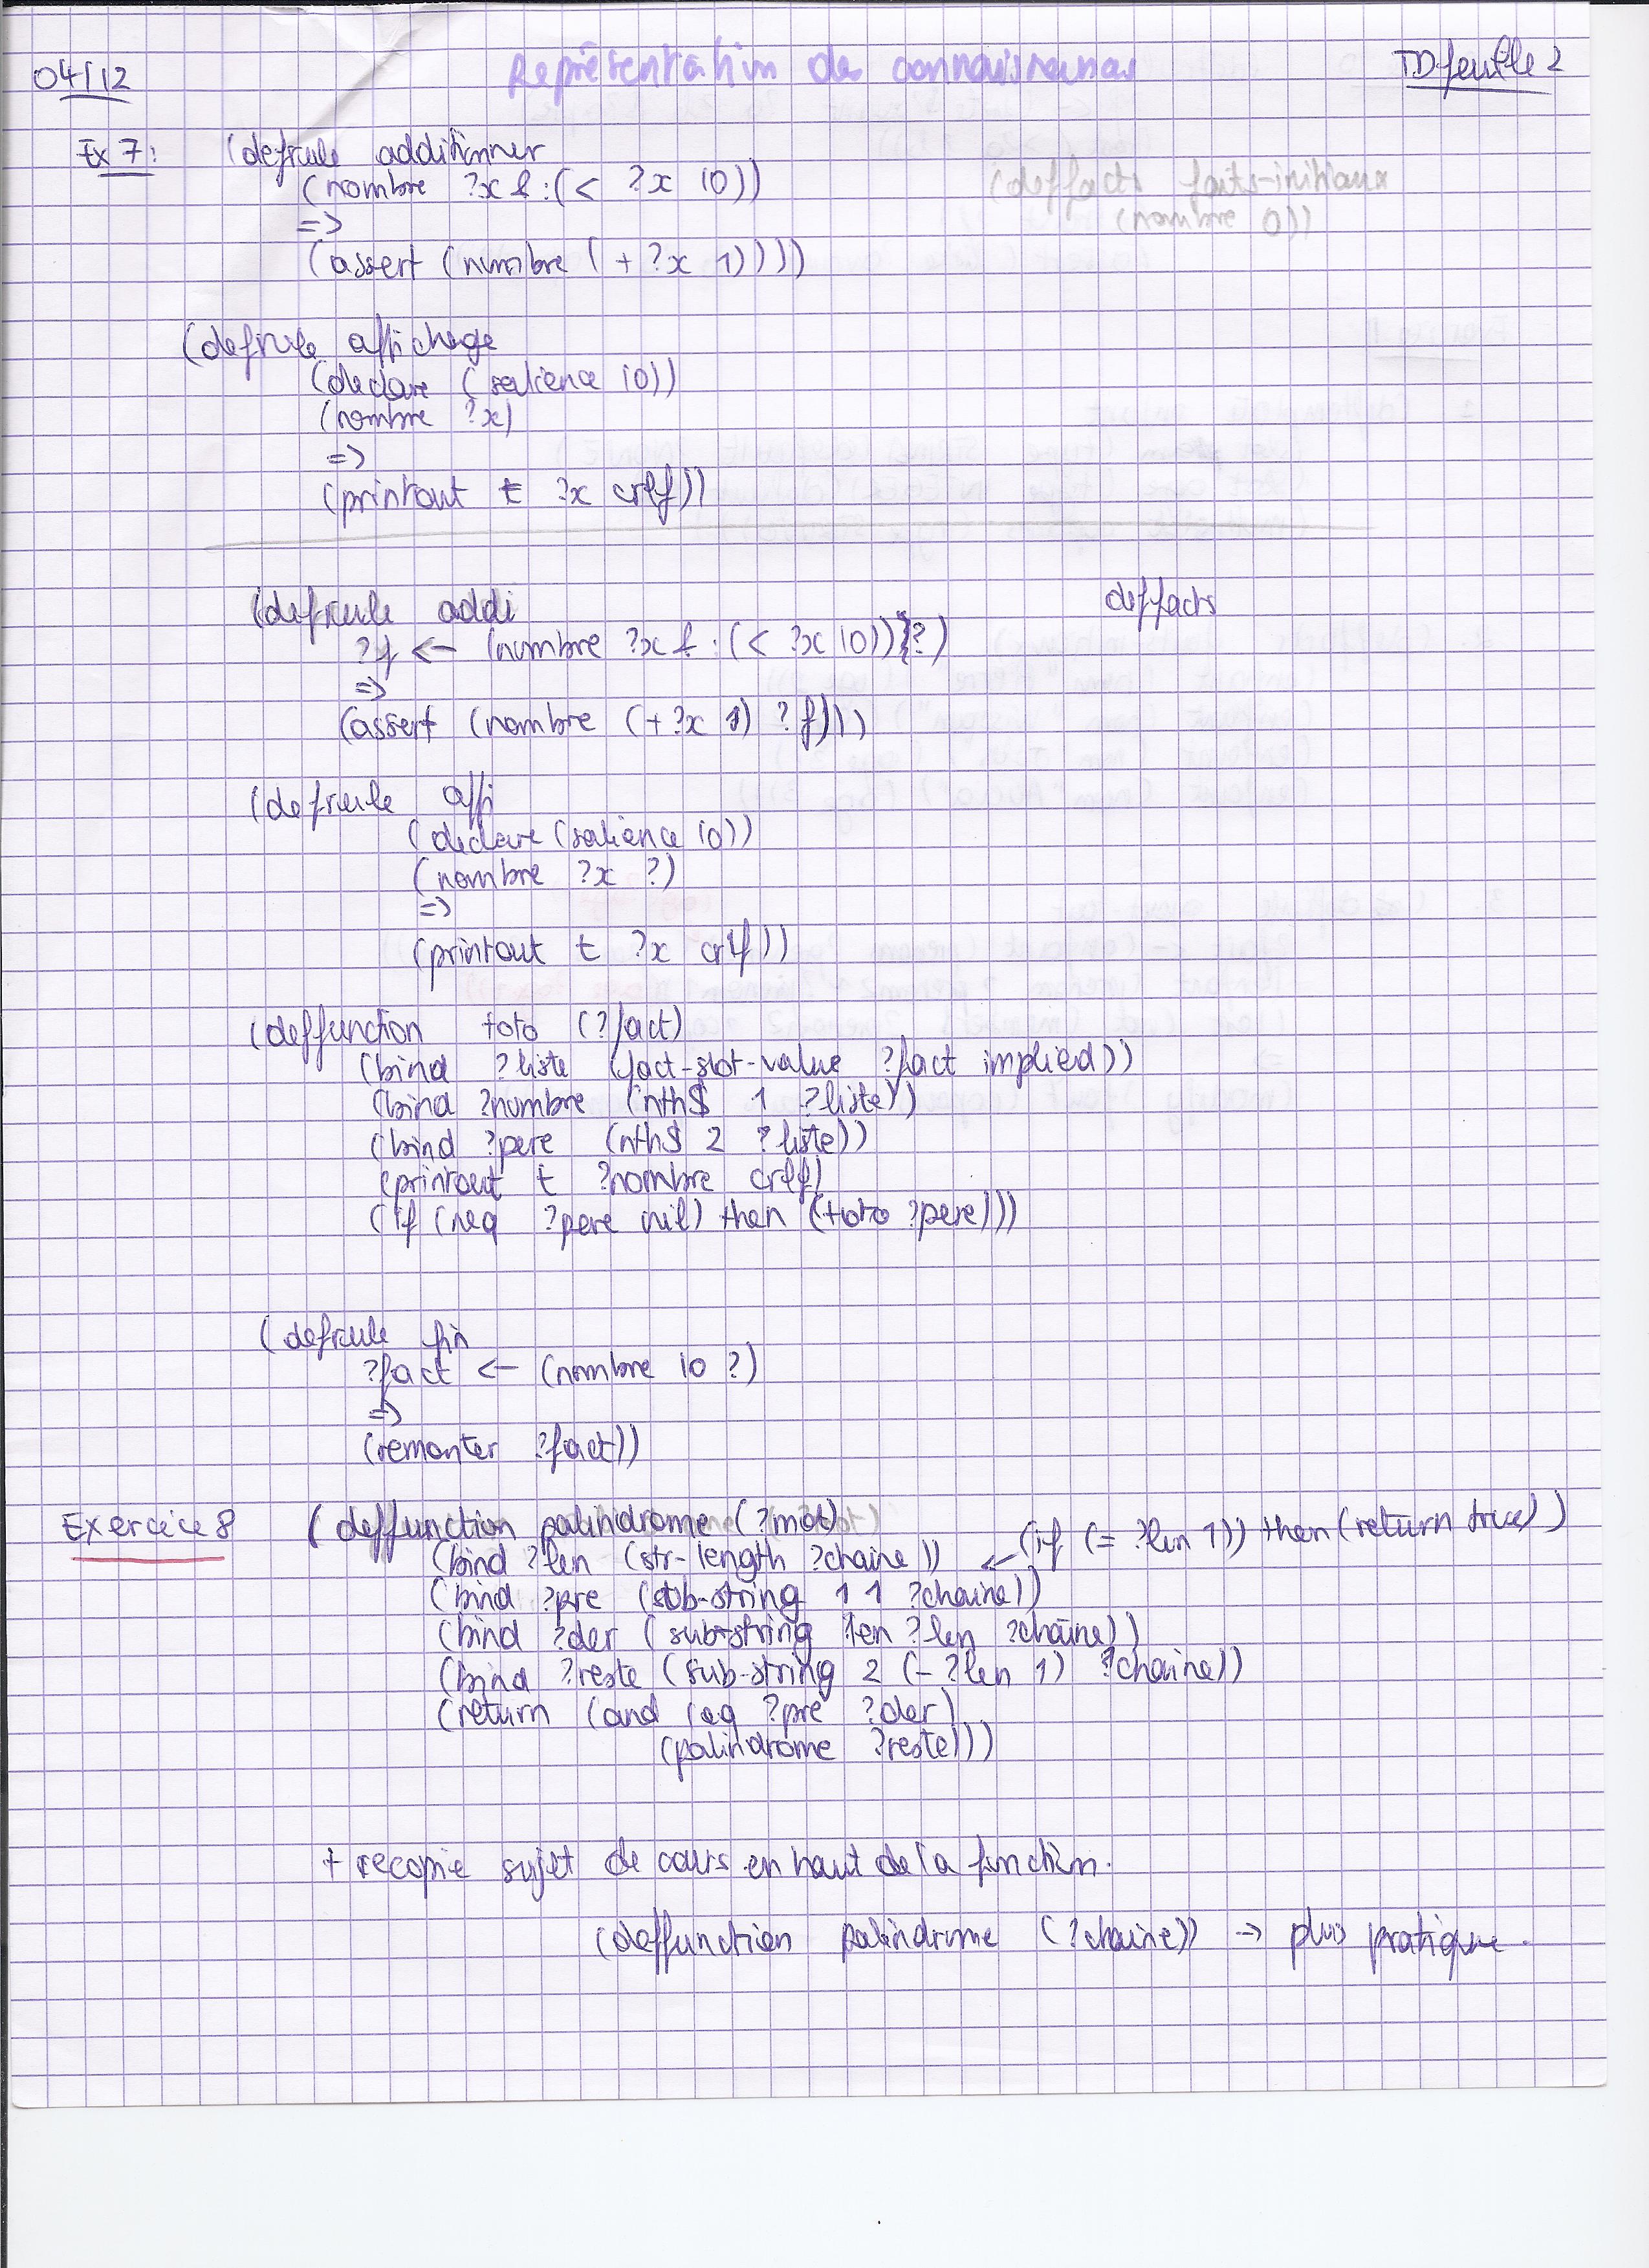 04/12
Représentation des connaissances
TD feuille 2
Ex 7: (defrule additionner
(nombre ?x &:(< ?x 10))
=>
(assert (nombre (+ ?x 1))))
(deffacts faits-initiaux
(nombre 0))
(defrule affichage
(declare (salience 10))
(nombre ?x)
=>
(printout t ?x crlf))
(defrule addi
deffacts
?f <- (nombre ?x &:(< ?x 10)) ?)
=>
(assert (nombre (+ ?x 1) ?f)))
(defrule affi
(declare (salience 10))
(nombre ?x ?)
=>
(printout t ?x crlf))
(deffunction toto (?fact)
(bind ?liste (fact-slot-value ?fact implied))
(bind ?nombre (nth$ 1 ?liste))
(bind ?pere (nth$ 2 ?liste))
(printout t ?nombre crlf)
(if (neq ?pere nil) then (toto ?pere)))
(defrule fin
?fact <- (nombre 10 ?)
=>
(remonter ?fact))
Exercice 8 (deffunction palindrome (?mot)
(bind ?len (str-length ?chaine)) <- (if (= ?len 1)) then (return true))
(bind ?pre (sub-string 1 1 ?chaine))
(bind ?der (sub-string len ?len ?chaine))
(bind ?reste (sub-string 2 (- ?len 1) ?chaine))
(return (and (eq ?pre ?der)
(palindrome ?reste)))
+ recopie sujet de cours en haut de la function.
(deffunction palindrome (?chaine)) -> plus pratique.